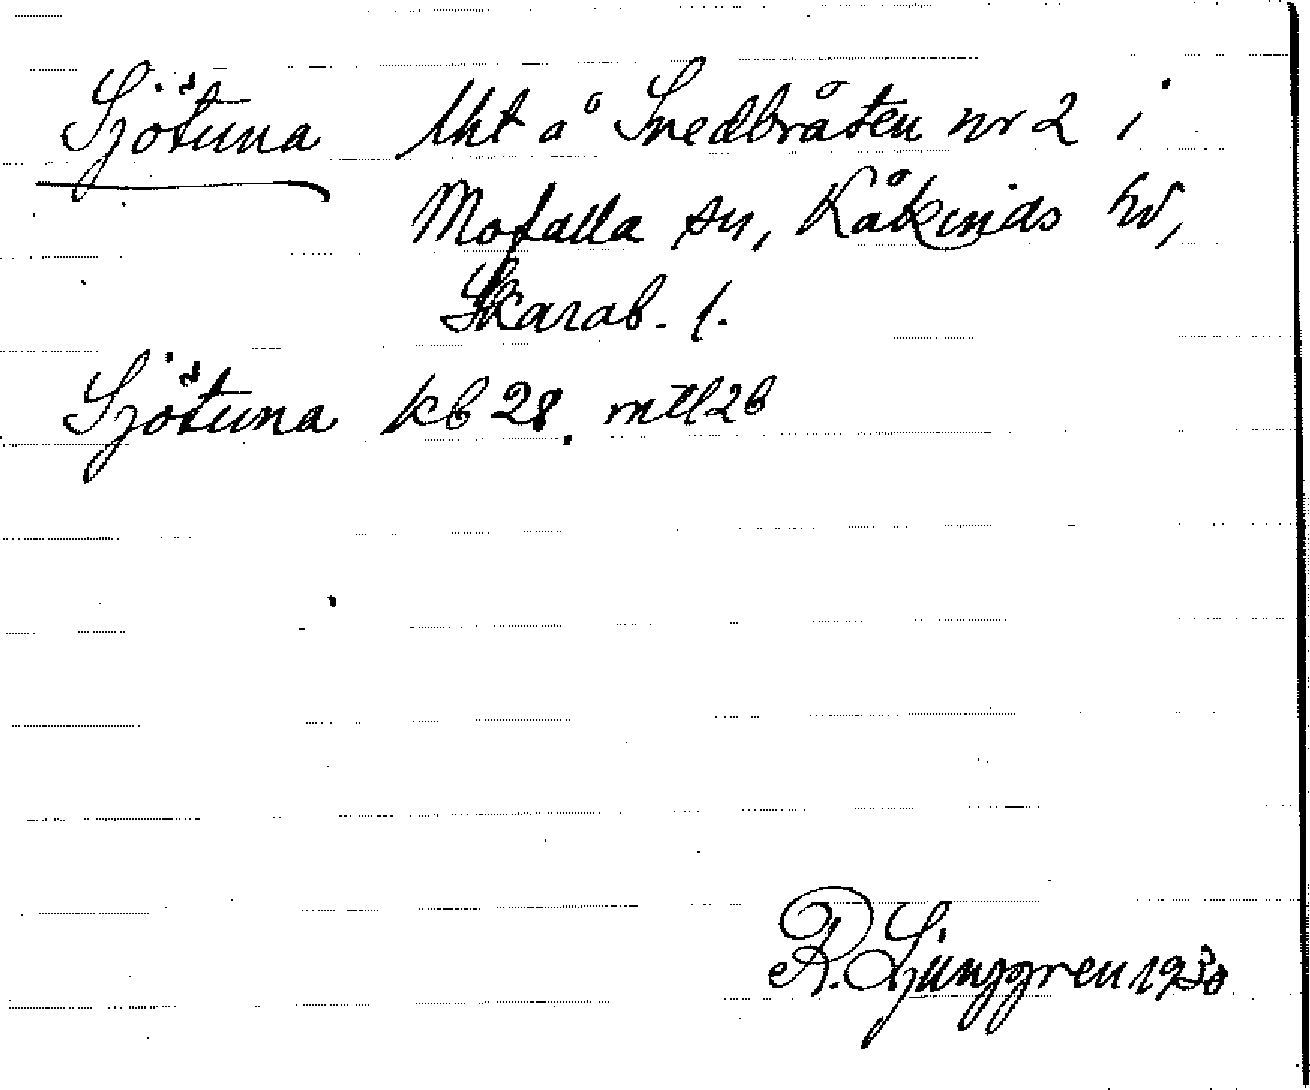 Sjötuna lht å Snedbråten nr 2 i
Mofalla sn, Kåkinds hd,
Skarab. l.
Sjötuna kb 28, mtl 2b
R. Ljunggren 1930